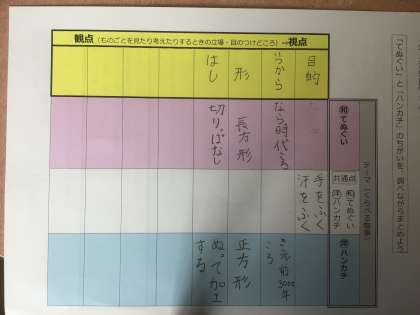 「てぬぐい」と「ハンカチ」のちがいを、調べながらまとめよう
テーマ(くらべる対象)
観点(ものごとを見たり考えたりするときの立場・目のつけどころ)⇒視点
目的
いつから
形
はし
和 てぬぐい
なら時代ころ
長方形
切りっぱなし
共通点
和てぬぐい
洋ハンカチ
手をふく
汗をふく
洋 ハンカチ
き元前3000年
ころ
正方形
ぬって加工
する